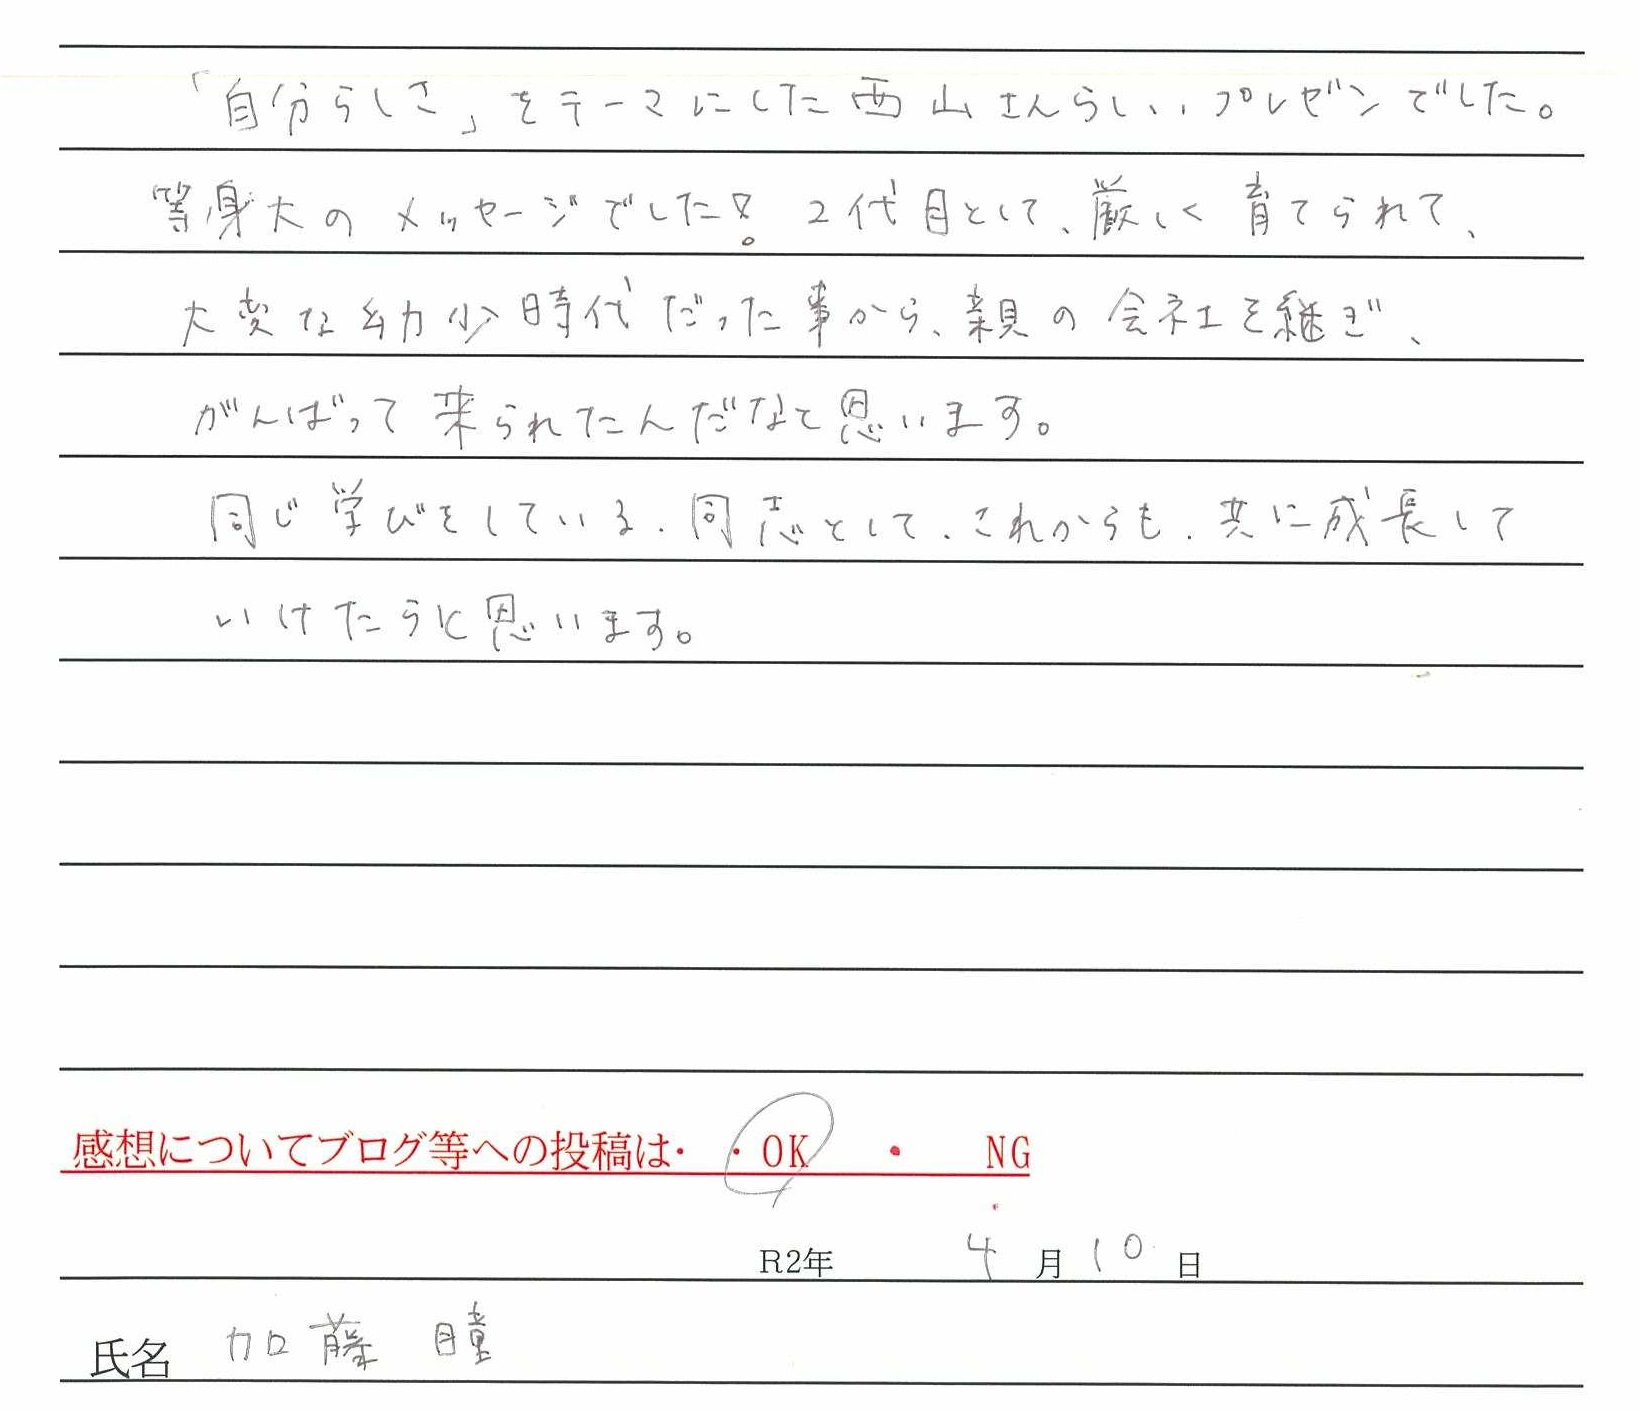 「自分らしさ」をテーマにした西山さんらしい、プレゼンでした。
等身大のメッセージでした! 2代目として、厳しく育てられて、
大変な幼少時代だった事から、親の会社を継ぎ、
がんばって来られたんだなと思います。
同じ学びをしている、同志として、これからも、共に成長して
いけたらと思います。
感想についてブログ等への投稿は・ ・OK ・ NG
R2年 4月10日
氏名 加藤 瞳